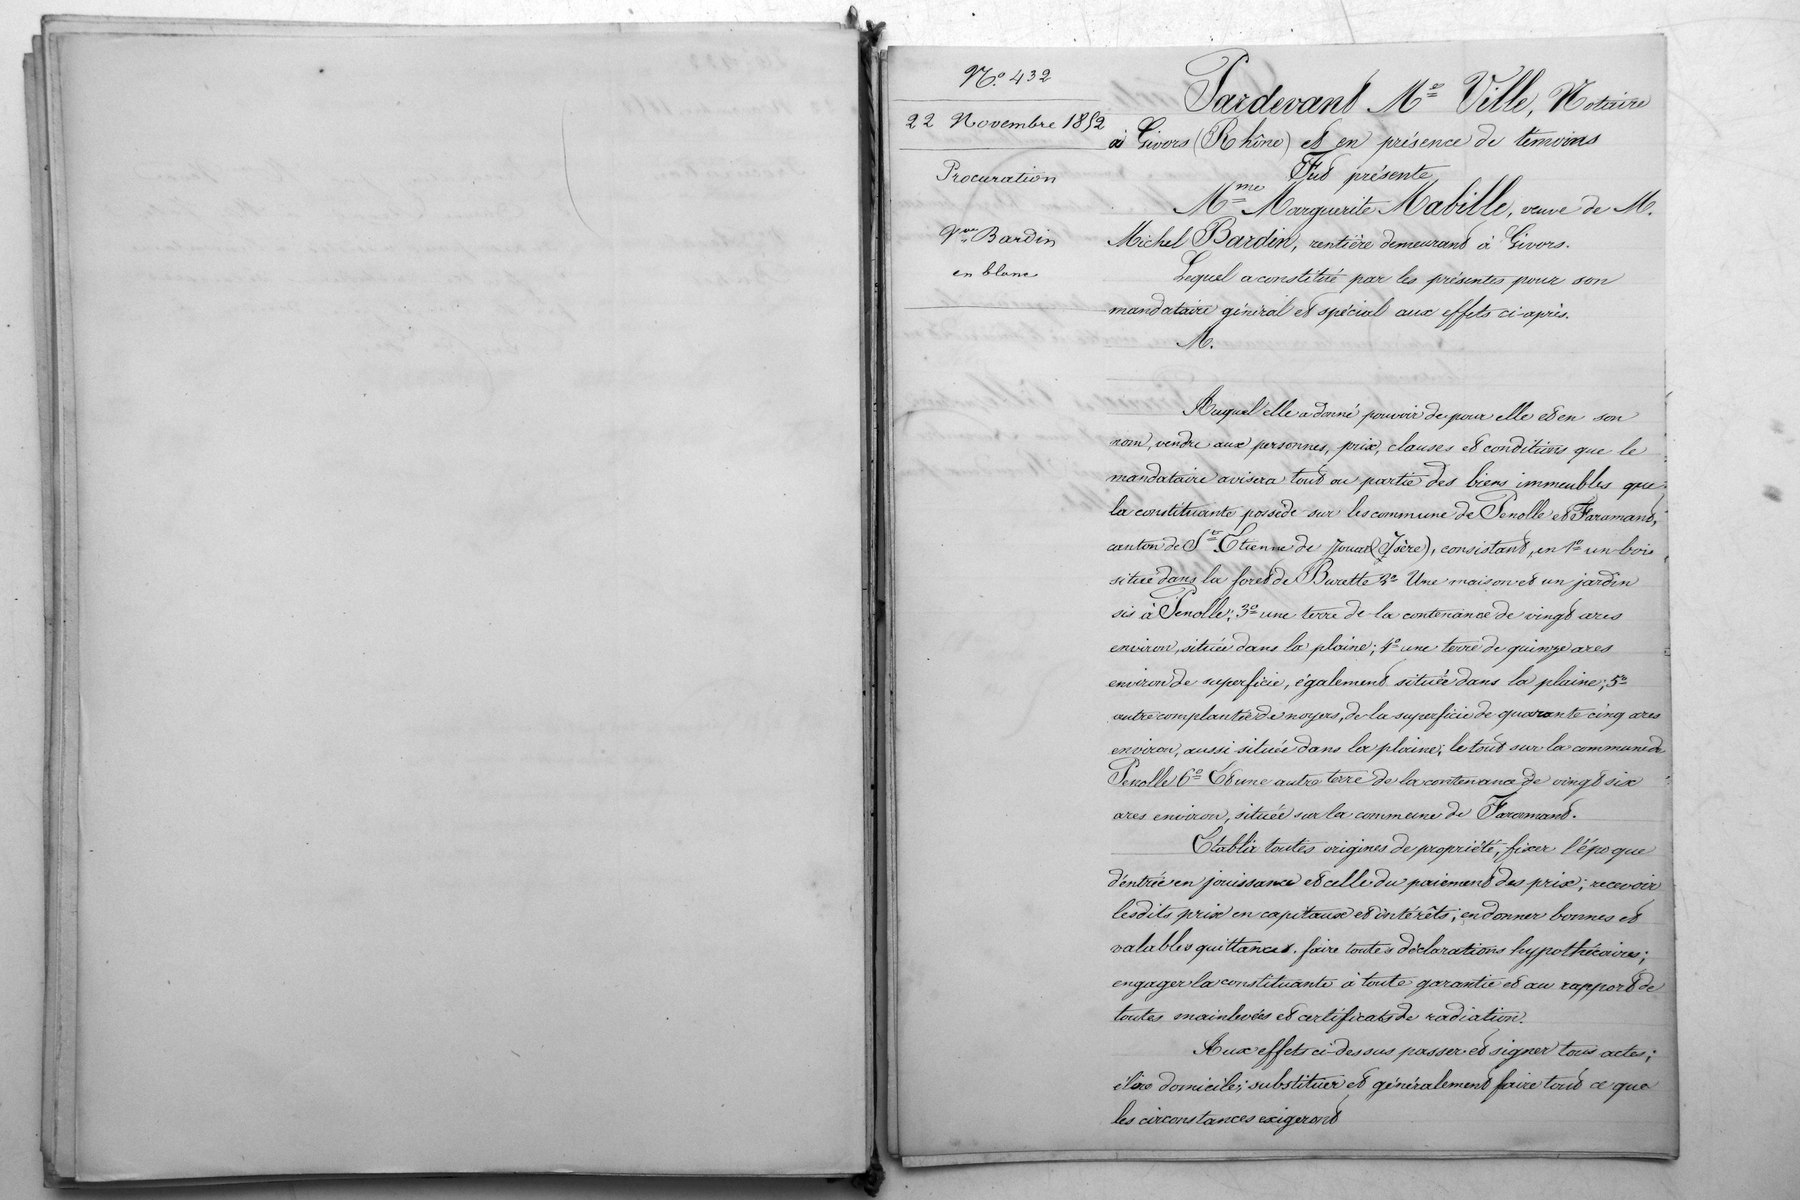 N.° 432
22 Novembre 1852
Procuration
Vve Bardin
en blanc
Pardevant Me Ville, Notaire
à Givors (Rhône) et en présence de témoins
Fut présente
Mme Marguerite Mabille, veuve de M.
Michel Bardin, rentière demeurant à Givors.
Lequel a constitué par les présentes pour son
mandataire général et spécial aux effets ci-après.
M.
Auquel elle a donné pouvoir de pour elle et en son
nom, vendre aux personnes, prix, clauses et conditions que le
mandataire avisera tout ou partie des biens immeubles que
la constituante possède sur les commune de Penolle et Faramant,
canton de St Etienne de (Isère), consistant, en 1° un bois
situé dans la foret de Burette 2° Une maison et un jardin
sis à Penolle; 3° une terre de la contenance de vingt ares
environ, située dans la plaine; 4° une terre de quinze ares
environ de superficie, également située dans la plaine; 5°
autre complantée de noyers, de la superficie de quarante cinq ares
environ, aussi située dans la plaine; le tout sur la commune de
Penolle 6° Et une autre terre de la contenance de vingt six
ares environ, située sur la commune de Faramant.
Etablir toutes origines de propriété; fixer l'époque
d'entrée en jouissance et celle du paiement des prix; recevoir
lesdits prix en capitaux et intérêts; en donner bonnes et
valables quittances. faire toutes déclarations hypothécaires;
engager la constituante à toute garantie et au rapport de
toutes mainlevées et certificats de radiation.
Aux effets ci-dessus passer et signer tous actes;
élire domicile; substituer et généralement faire tout ce que
les circonstances exigeront